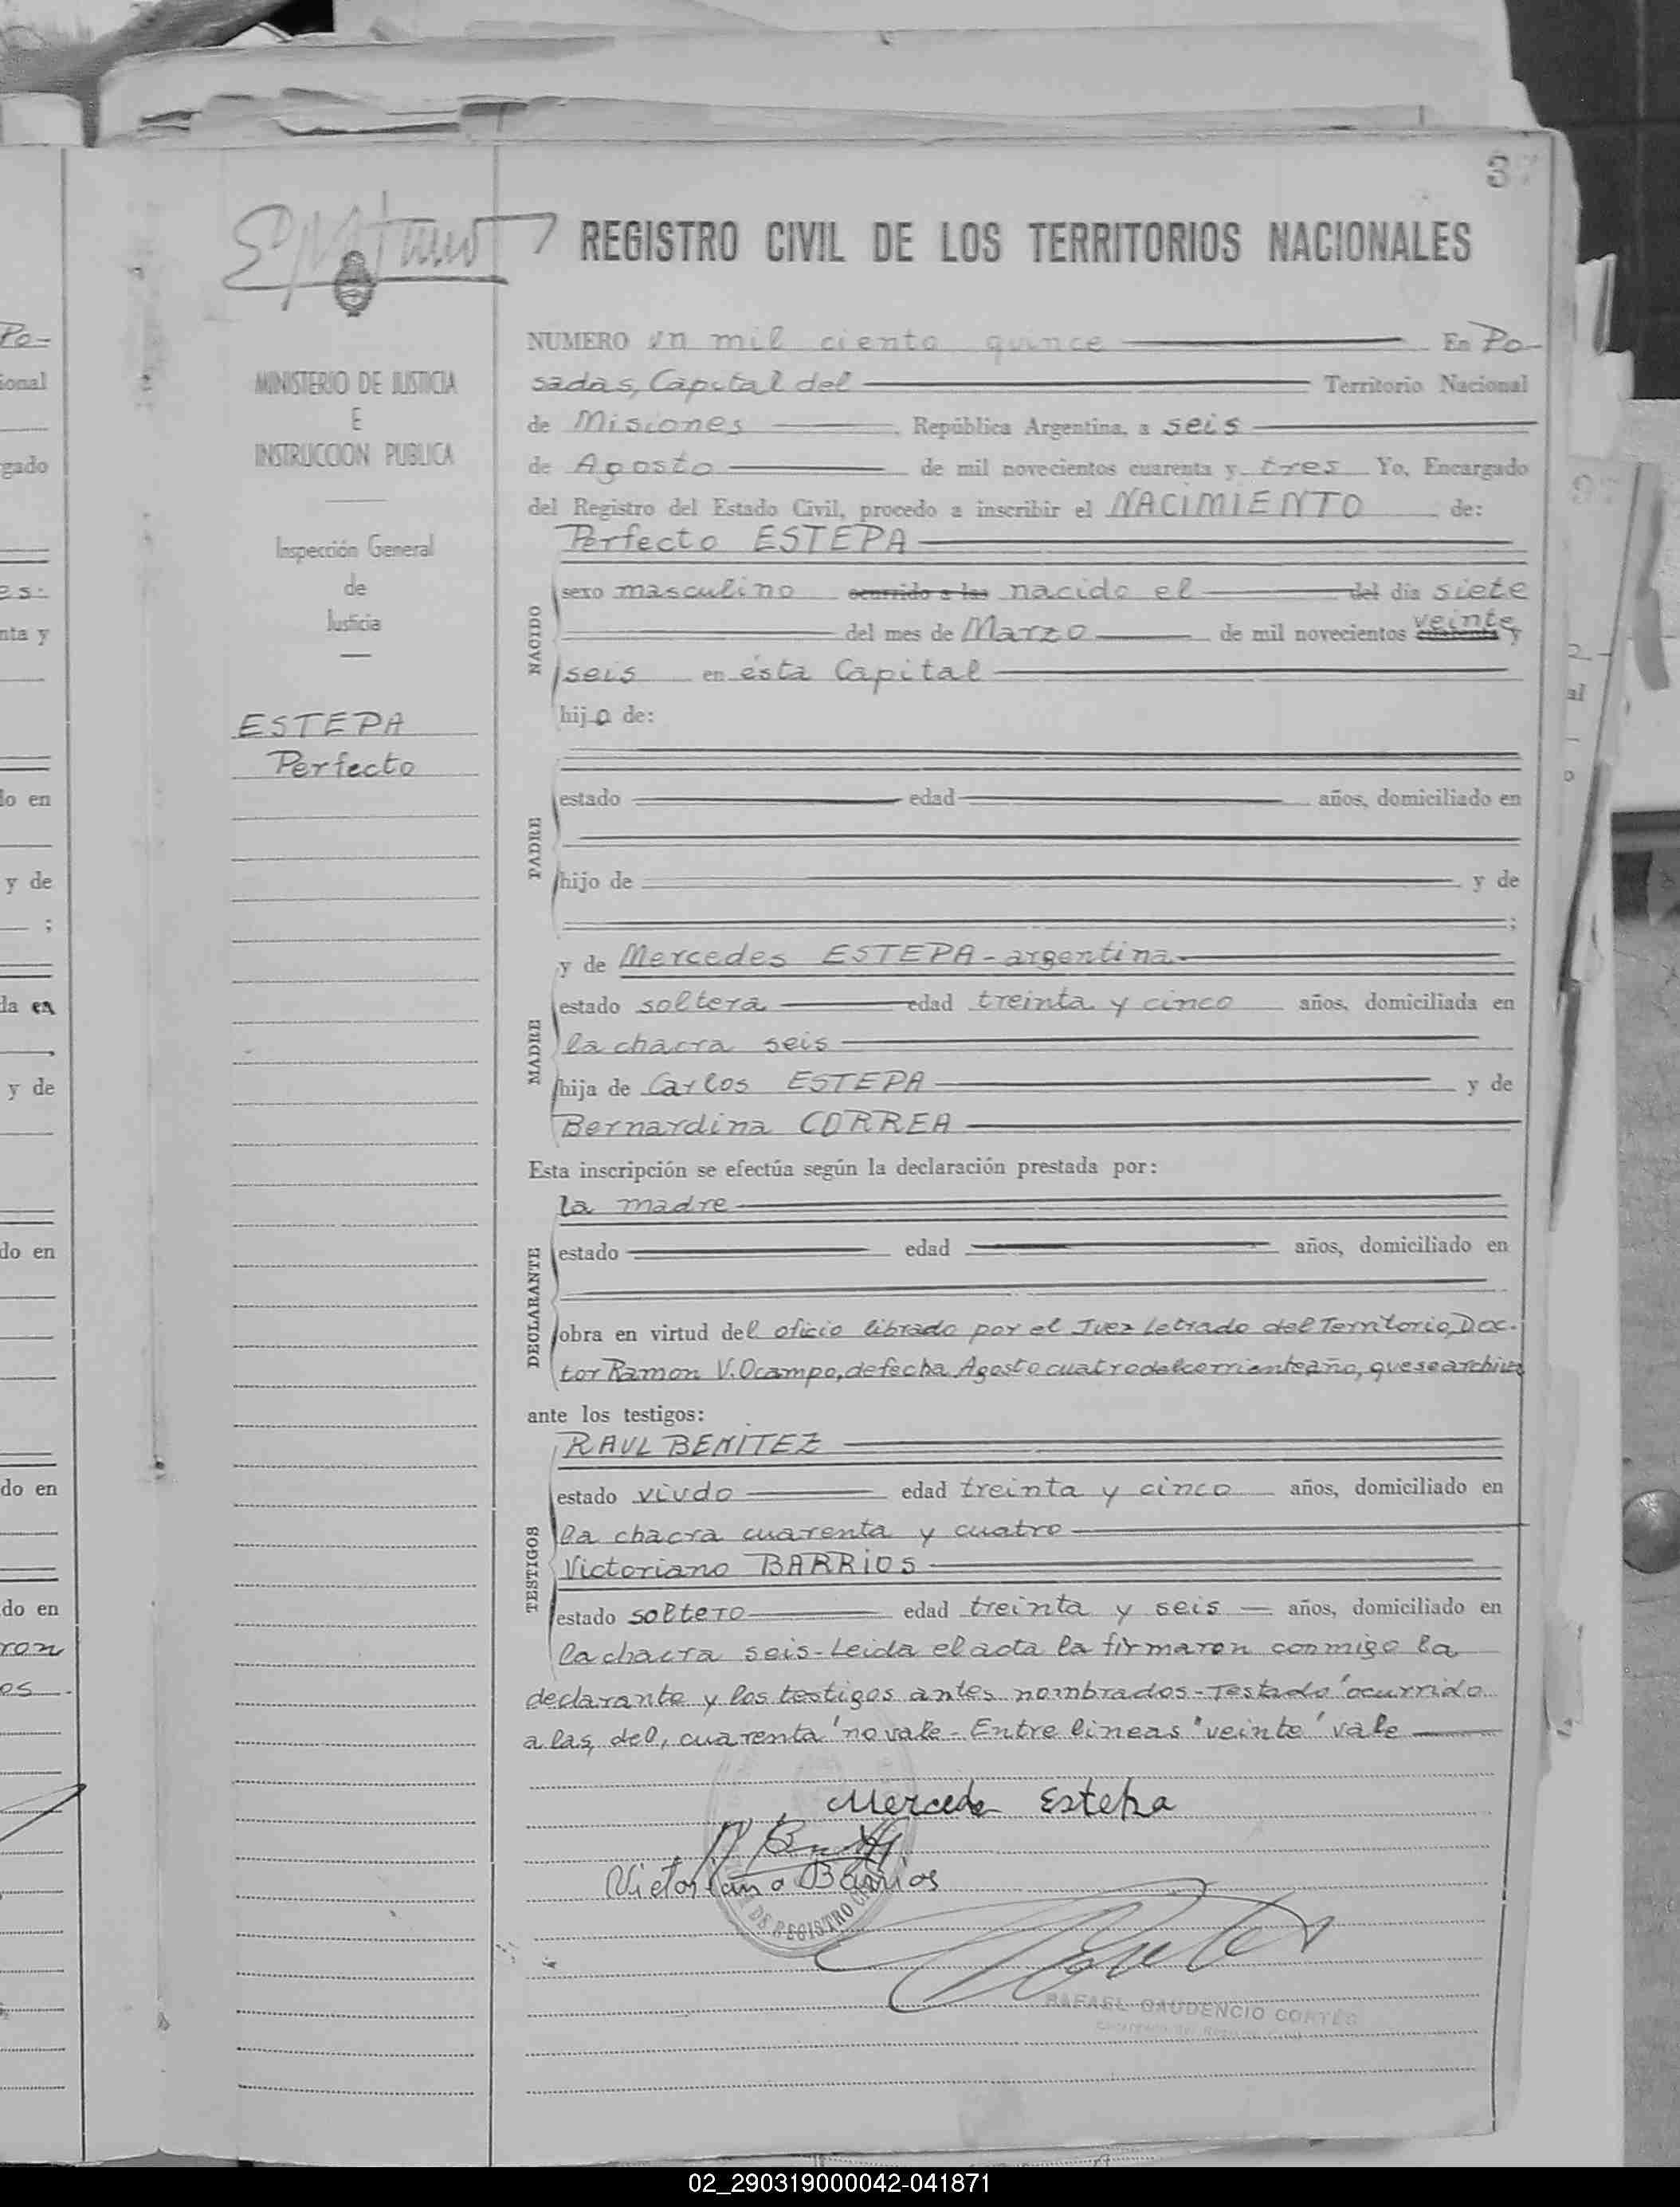 37
REGISTRO CIVIL DE LOS TERRITORIOS NACIONALES
MINISTERIO DE JUSTICIA
E
INSTRUCCION PUBLICA
Inspección General
de
Justicia
ESTEPA
Perfecto
NUMERO un mil ciento quince En Po-
sadas, Capital del Territorio Nacional
de Misiones , República Argentina, a seis
de Agosto de mil novecientos cuarenta y tres Yo, Encargado
del Registro del Estado Civil, procedo a inscribir el NACIMIENTO de:
Perfecto ESTEPA
NACIDO
sexo masculino ocurrido a las nacido el del dia siete
veinte
del mes de Marzo de mil novecientos cuarenta y
seis en ésta Capital
hijo de:
PADRE
estado edad años, domiciliado en
hijo de y de
;
MADRE
y de Mercedes ESTEPA - argentina-
estado soltera edad treinta y cinco años, domiciliada en
la chacra seis
hija de Carlos ESTEPA y de
Bernardina CORREA
Esta inscripción se efectúa según la declaración prestada por:
DECLARANTE
la madre
estado edad años, domiciliado en
obra en virtud del oficio librado por el Juez Letrado del Territorio, Doc-
tor Ramon V. Ocampo, de fecha Agosto cuatro del corriente año, que se archiva
ante los testigos:
TESTIGOS
RAUL BENITEZ
estado viudo edad treinta y cinco años, domiciliado en
la chacra cuarenta y cuatro
Victoriano BARRIOS
estado soltero edad treinta y seis años, domiciliado en
la chacra seis - Leida el acta la firmaron conmigo la
declarante y los testigos antes nombrados - Testado "ocurrido
a las, del, cuarenta" no vale - Entre lineas "veinte" vale
Mercedes Estepa
Victoriano Barrios
DE REGISTRO
RAFAEL GAUDENCIO CORTÉS
02_290319000042-041871